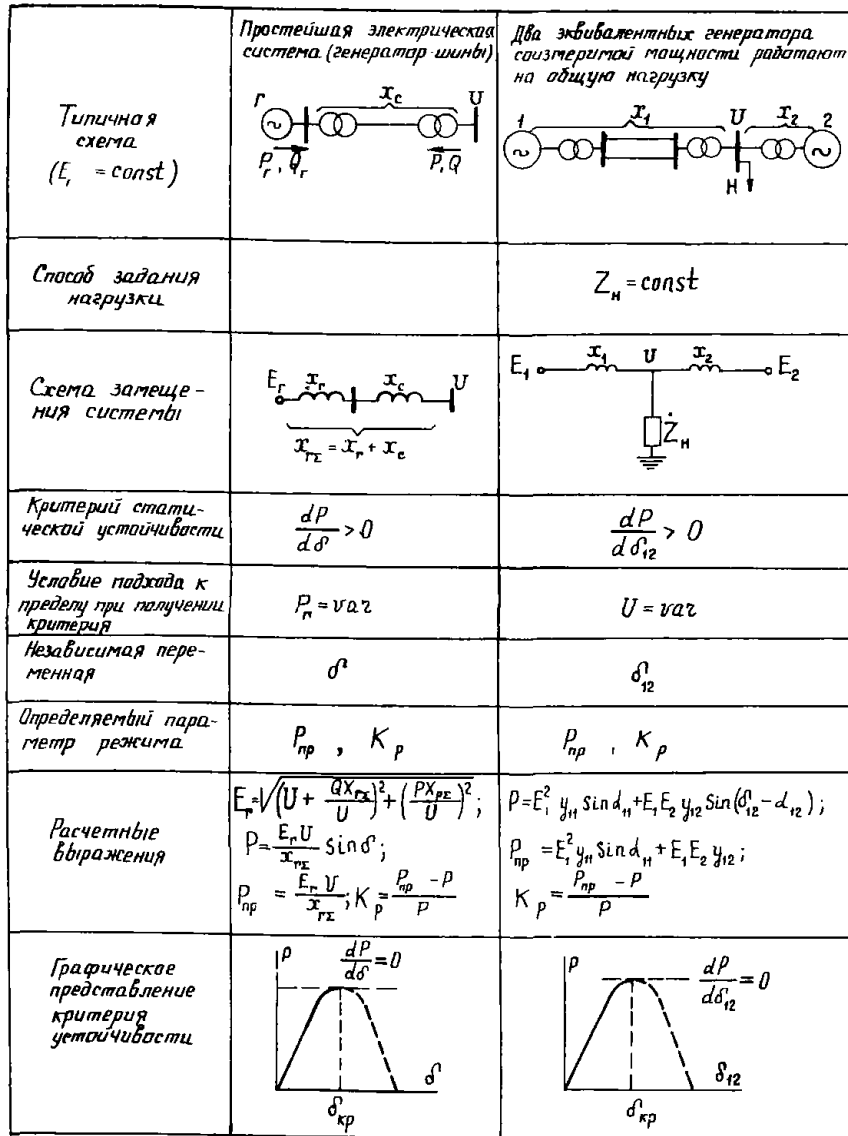 Простейшая электрическая
система (генератор-шины)
Два эквивалентных генератора
соизмеримой мощности работают
на общую нагрузку
Типичная
схема
(E, = const)
Г
x_c
U
P_г, Q_г
P, Q
1
x_1
U
x_2
2
H
Способ задания
нагрузки
Z_н = const
Схема замеще-
ния системы
E_г
x_г
x_c
U
x_ГΣ = x_г + x_c
E_1
x_1
U
x_2
E_2
Ż_н
Критерий стати-
ческой устойчивости
dP/dδ > 0
dP/dδ_12 > 0
Условие подхода к
пределу при получении
критерия
P_г = var
U = var
Независимая пере-
менная
δ
δ_12
Определяемый пара-
метр режима
P_пр , K_р
P_пр , K_р
Расчетные
выражения
E_г = √((U + QX_ГΣ/U)² + (PX_РΣ/U)²);
P = E_г U/x_ГΣ sin δ;
P_пр = E_г U/x_ГΣ; K_р = P_пр - P/P
P = E_1² y_11 sin α_11 + E_1 E_2 y_12 Sin(δ_12 - α_12);
P_пр = E_1² y_11 Sin α_11 + E_1 E_2 y_12;
K_р = P_пр - P/P
Графическое
представление
критерия
устойчивости
P
dP/dδ = 0
δ
δ_кр
P
dP/dδ_12 = 0
δ_12
δ_кр